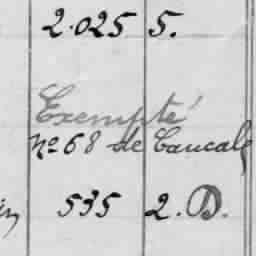 2.025 5.
Exempté
No 68 de Caucale
535 2. D.